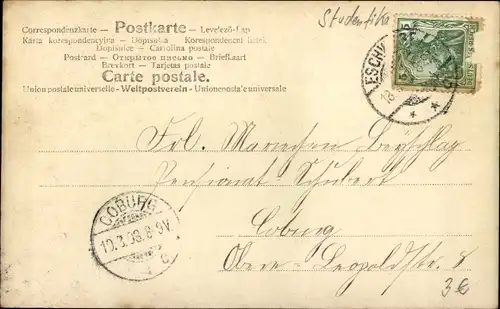 Studentika
Correspondenzkarte – Postkarte – Levelező-Lap
Karta korespondencyjna – Dopisnica – Korespondenční lístek
Dopisnice – Cartolina postale
Post-card – Открытое письмо – Briefkaart
Brevkort – Tarjetas postale
Carte postale.
Union postale universelle – Weltpostverein – Unione postale universale
ESCHW
5
Frl. Mariechen Beyschlag
Pensionat Schubert
Coburg
Obere Leopoldstr. 8
COBURG
3€